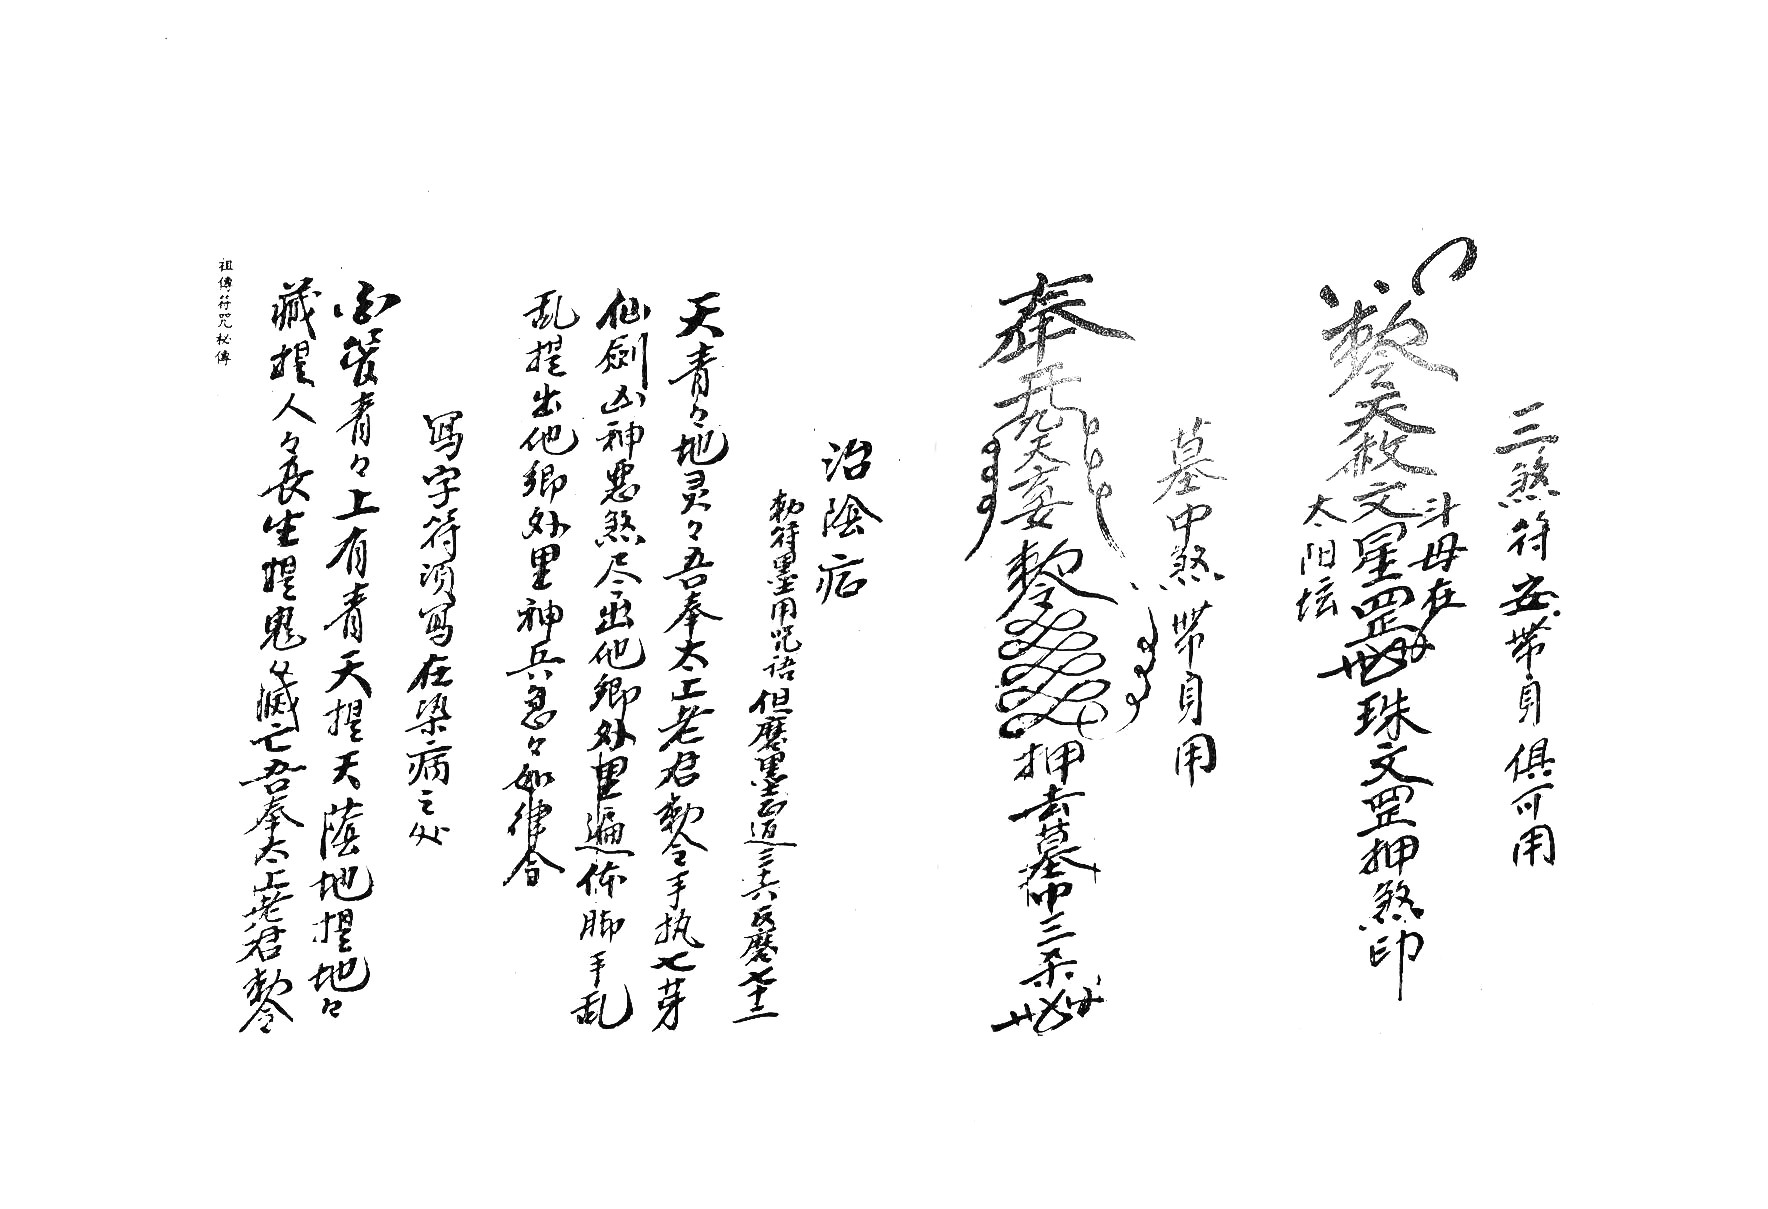 三煞符安带身俱可用
斗母在
敕令天赦文星罡珠文罡押煞印
太阳坛
墓中煞带身用
奉
九天玄女敕令
押去墓中三煞
治陰病
勅符墨用咒语但磨墨
三十六反磨七十三
天青々地灵々吾奉太上老君敕令手执七芽
仙劍凶神恶煞尽出他鄉外里遍体脚手乱
乱提出他鄉外里神兵急々如律令
写字符须写在染病之处
青々上有青天提天蔭地提地々
藏提人々長生提鬼々滅亡吾奉太上老君敕令
祖傳符咒秘傳